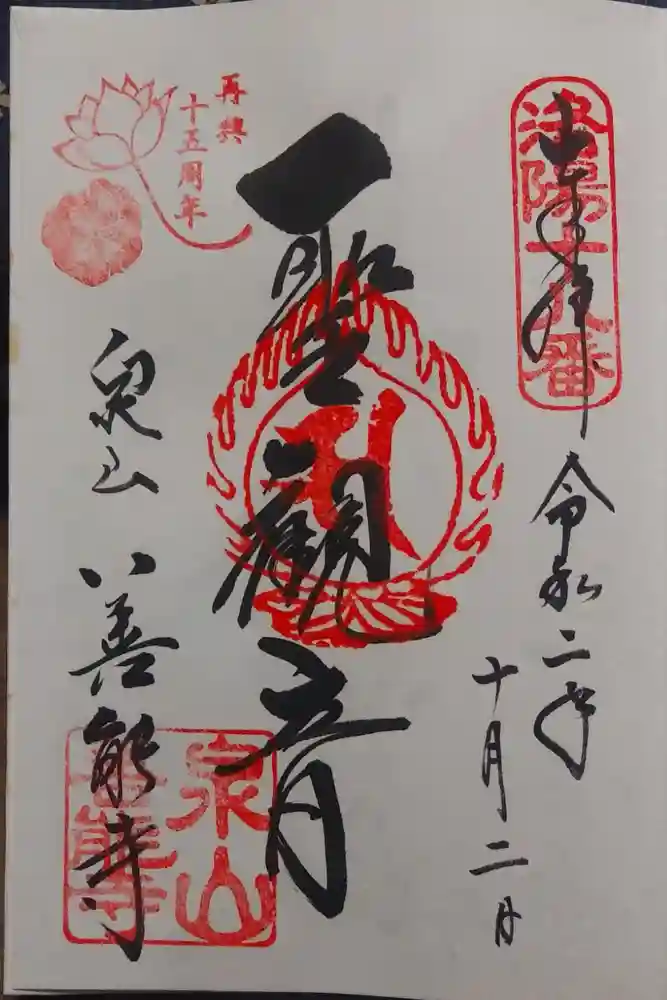 洛陽十八番
奉拝
令和二年
十月二日
聖観音
再興
十五周年
泉山
善能寺
泉山
善能寺